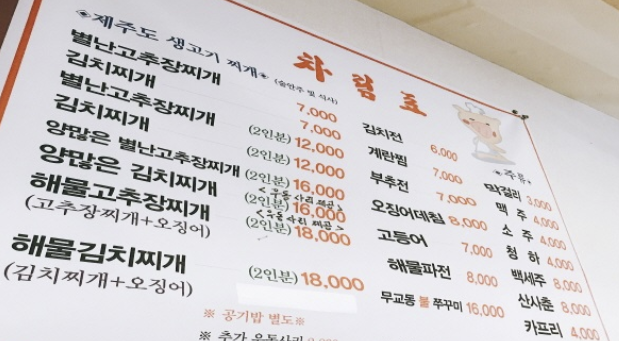 차림표
◈제주도 생고기 찌개◈ (술안주 및 식사)
별난고추장찌개 7,000
김치찌개 7,000
별난고추장찌개 (2인분) 12,000
김치찌개 (2인분) 12,000
양많은 별난고추장찌개 (2인분) 16,000
<우동사리 제공>
양많은 김치찌개 (2인분) 16,000
<우동사리 제공>
해물고추장찌개 (2인분) 18,000
(고추장찌개+오징어)
해물김치찌개 (2인분) 18,000
(김치찌개+오징어)
※ 공기밥 별도※
※ 추가 우동사리
김치전 6,000
계란찜 7,000
부추전 7,000
오징어데침 8,000
고등어 7,000
해물파전 8,000
무교동 불 쭈꾸미 16,000
◈주류◈
막걸리 3,000
맥 주 4,000
소 주 4,000
청 하 4,000
백세주 8,000
산사춘 8,000
카프리 4,000